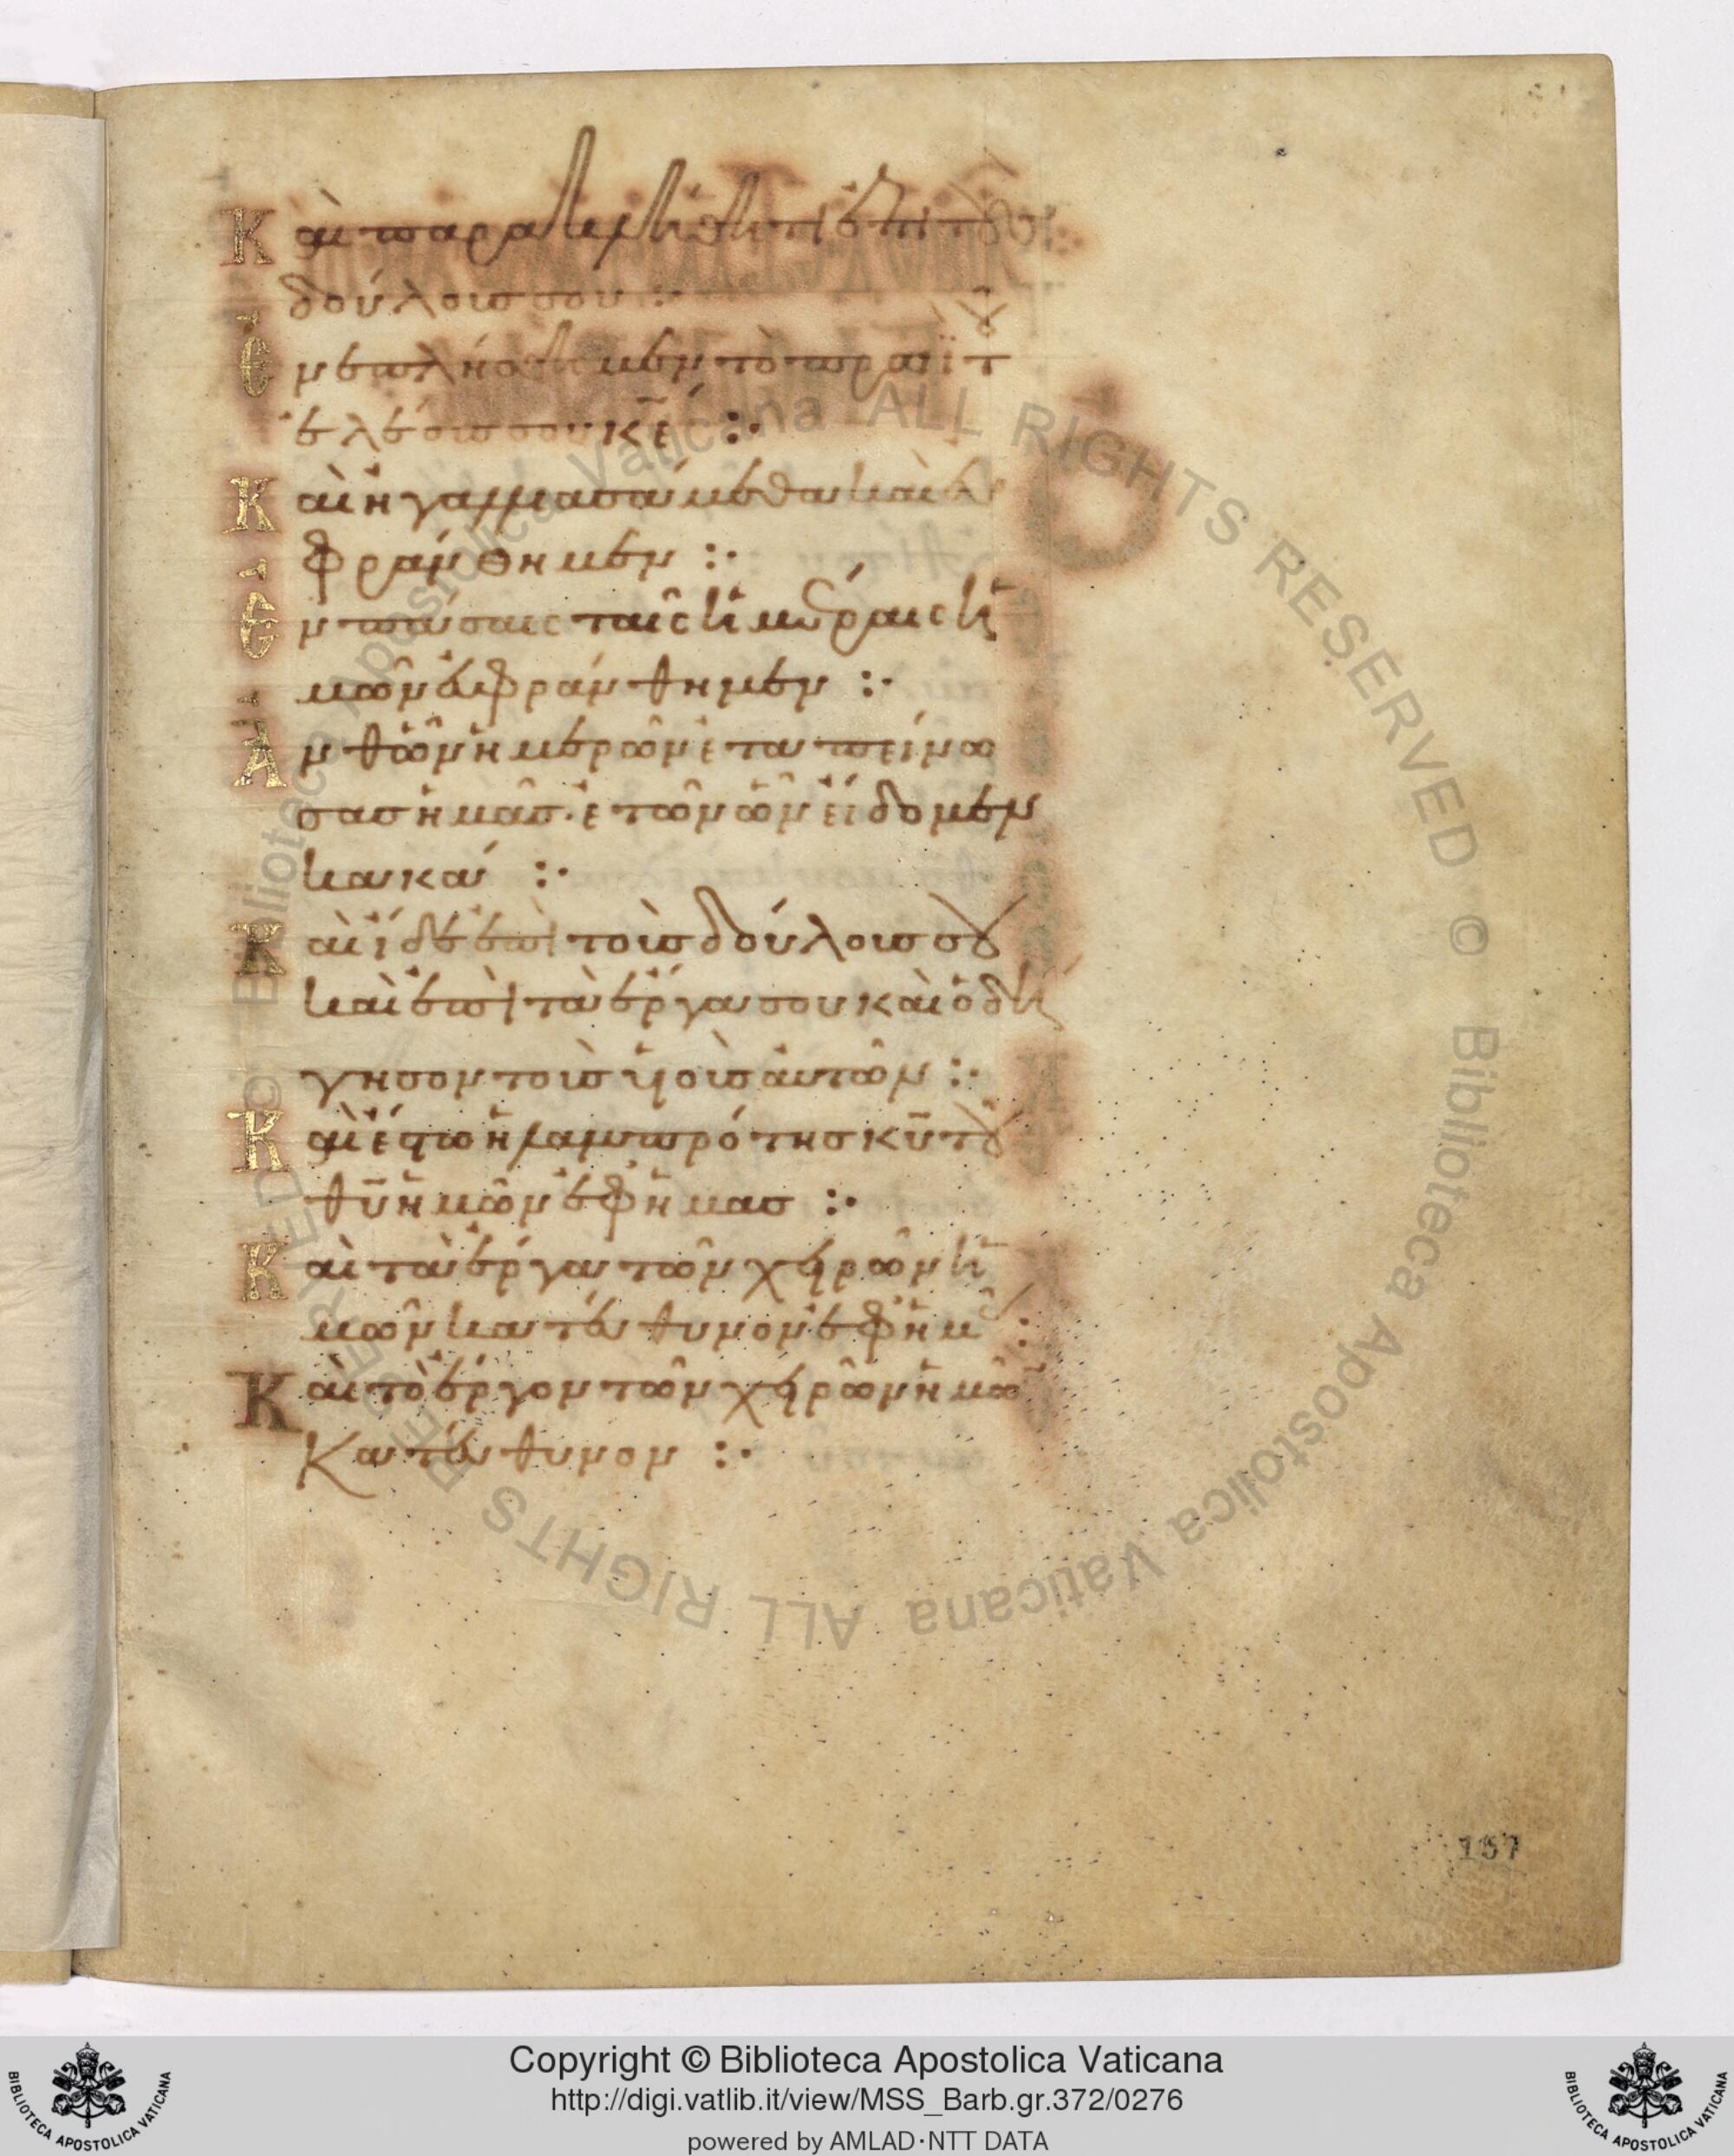 Καὶ παρακλήθητι ἐπὶ τοῖς
δούλοις σου :·
Ἐνεπλήσθημεν τὸ πρωῒ τοῦ
ἐλέους σου κ̅ε̅ :·
Καὶ ἠγαλλιασάμεθα καὶ εὐ
φράνθημεν :·
Ἐν πάσαις ταῖς ἡμέραις ἡ
μῶν εὐφράνθημεν :·
Ἀνθ ὧν ἡμερῶν ἐταπείνω
σας ἡμᾶς· ἐτῶν ὧν εἴδομεν
κακά :·
Καὶ ἴδε ἐπὶ τοὺς δούλους σου
καὶ ἐπὶ τὰ ἔργα σου καὶ ὁδή
γησον τοὺς υἱοὺς αὐτῶν :·
Καὶ ἔστω ἡ λαμπρότης κ̅υ̅ τοῦ
θ̅υ̅ ἡμῶν ἐφ ἡμας :·
Καὶ τὰ ἔργα τῶν χειρῶν ἡ
μῶν κατεύθυνον ἐφ ἡμᾶς :
Καὶ τὸ ἔργον τῶν χειρῶν ἡμῶν
κατεύθυνον :·
157
Copyright © Biblioteca Apostolica Vaticana
http://digi.vatlib.it/view/MSS_Barb.gr.372/0276
powered by AMLAD·NTT DATA
BIBLIOTECA APOSTOLICA VATICANA
BIBLIOTECA APOSTOLICA VATICANA
© Biblioteca Apostolica Vaticana ALL RIGHTS RESERVED © Biblioteca Apostolica Vaticana ALL RIGHTS RESERVED